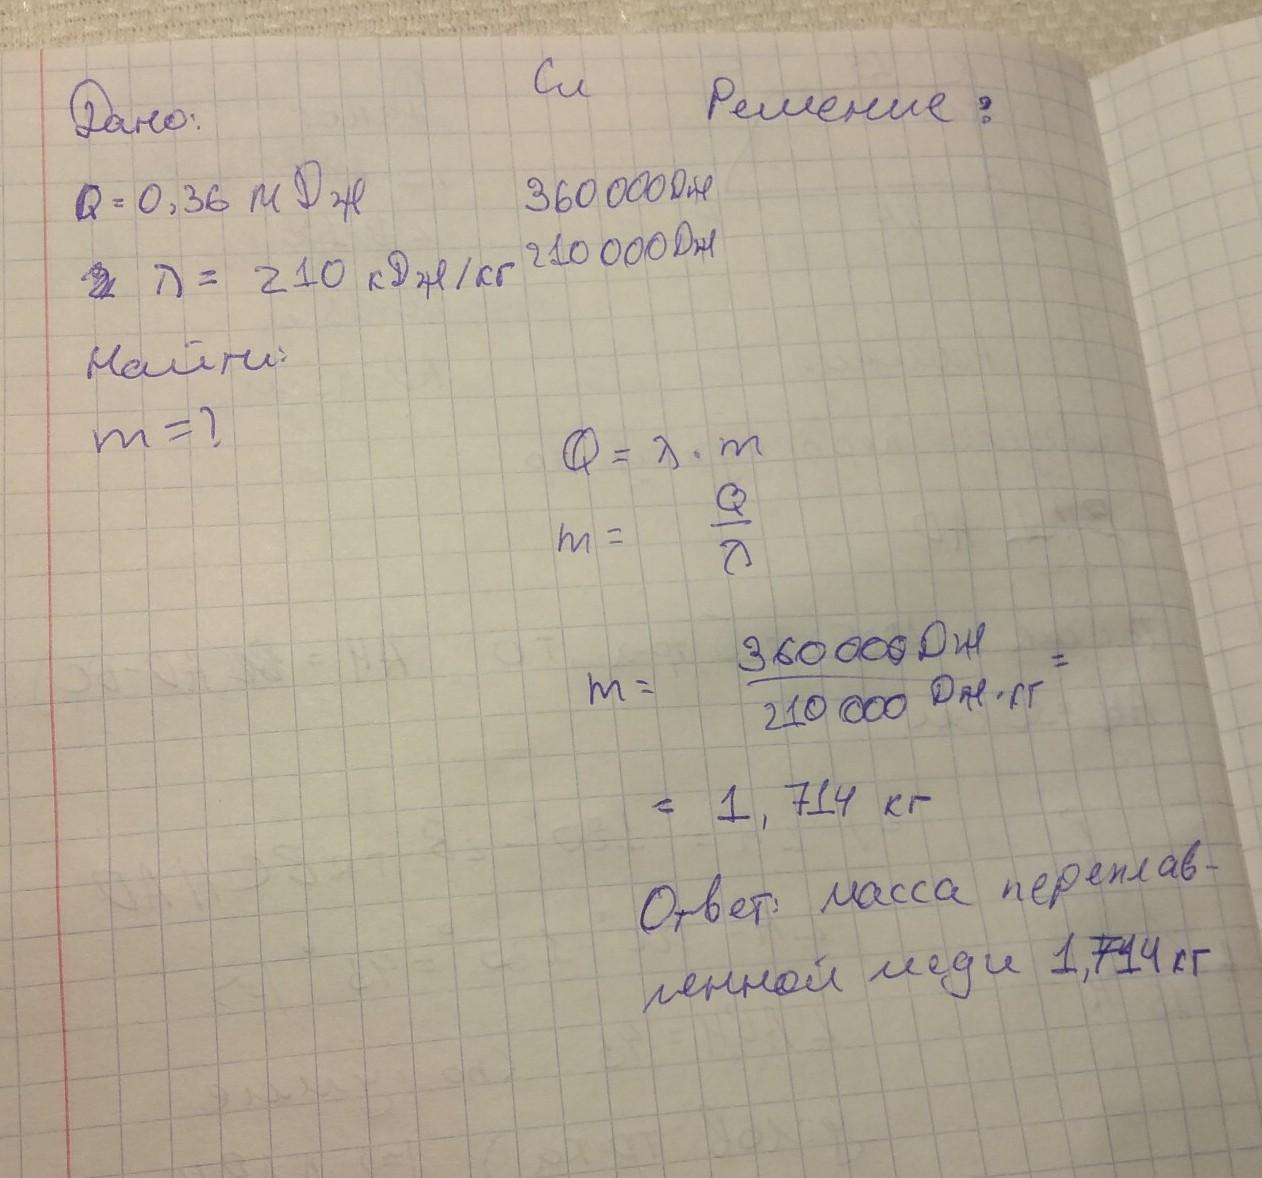 Дано:
Си
Решение:
Q = 0,36 МДж
360 000 Дж
λ = 210 кДж/кг
210 000 Дж
Найти:
m = ?
Q = λ · m
m = Q/λ
m = 360 000 Дж / 210 000 Дж·кг =
= 1,714 кг
Ответ: масса переплав-
ленной меди 1,714 кг